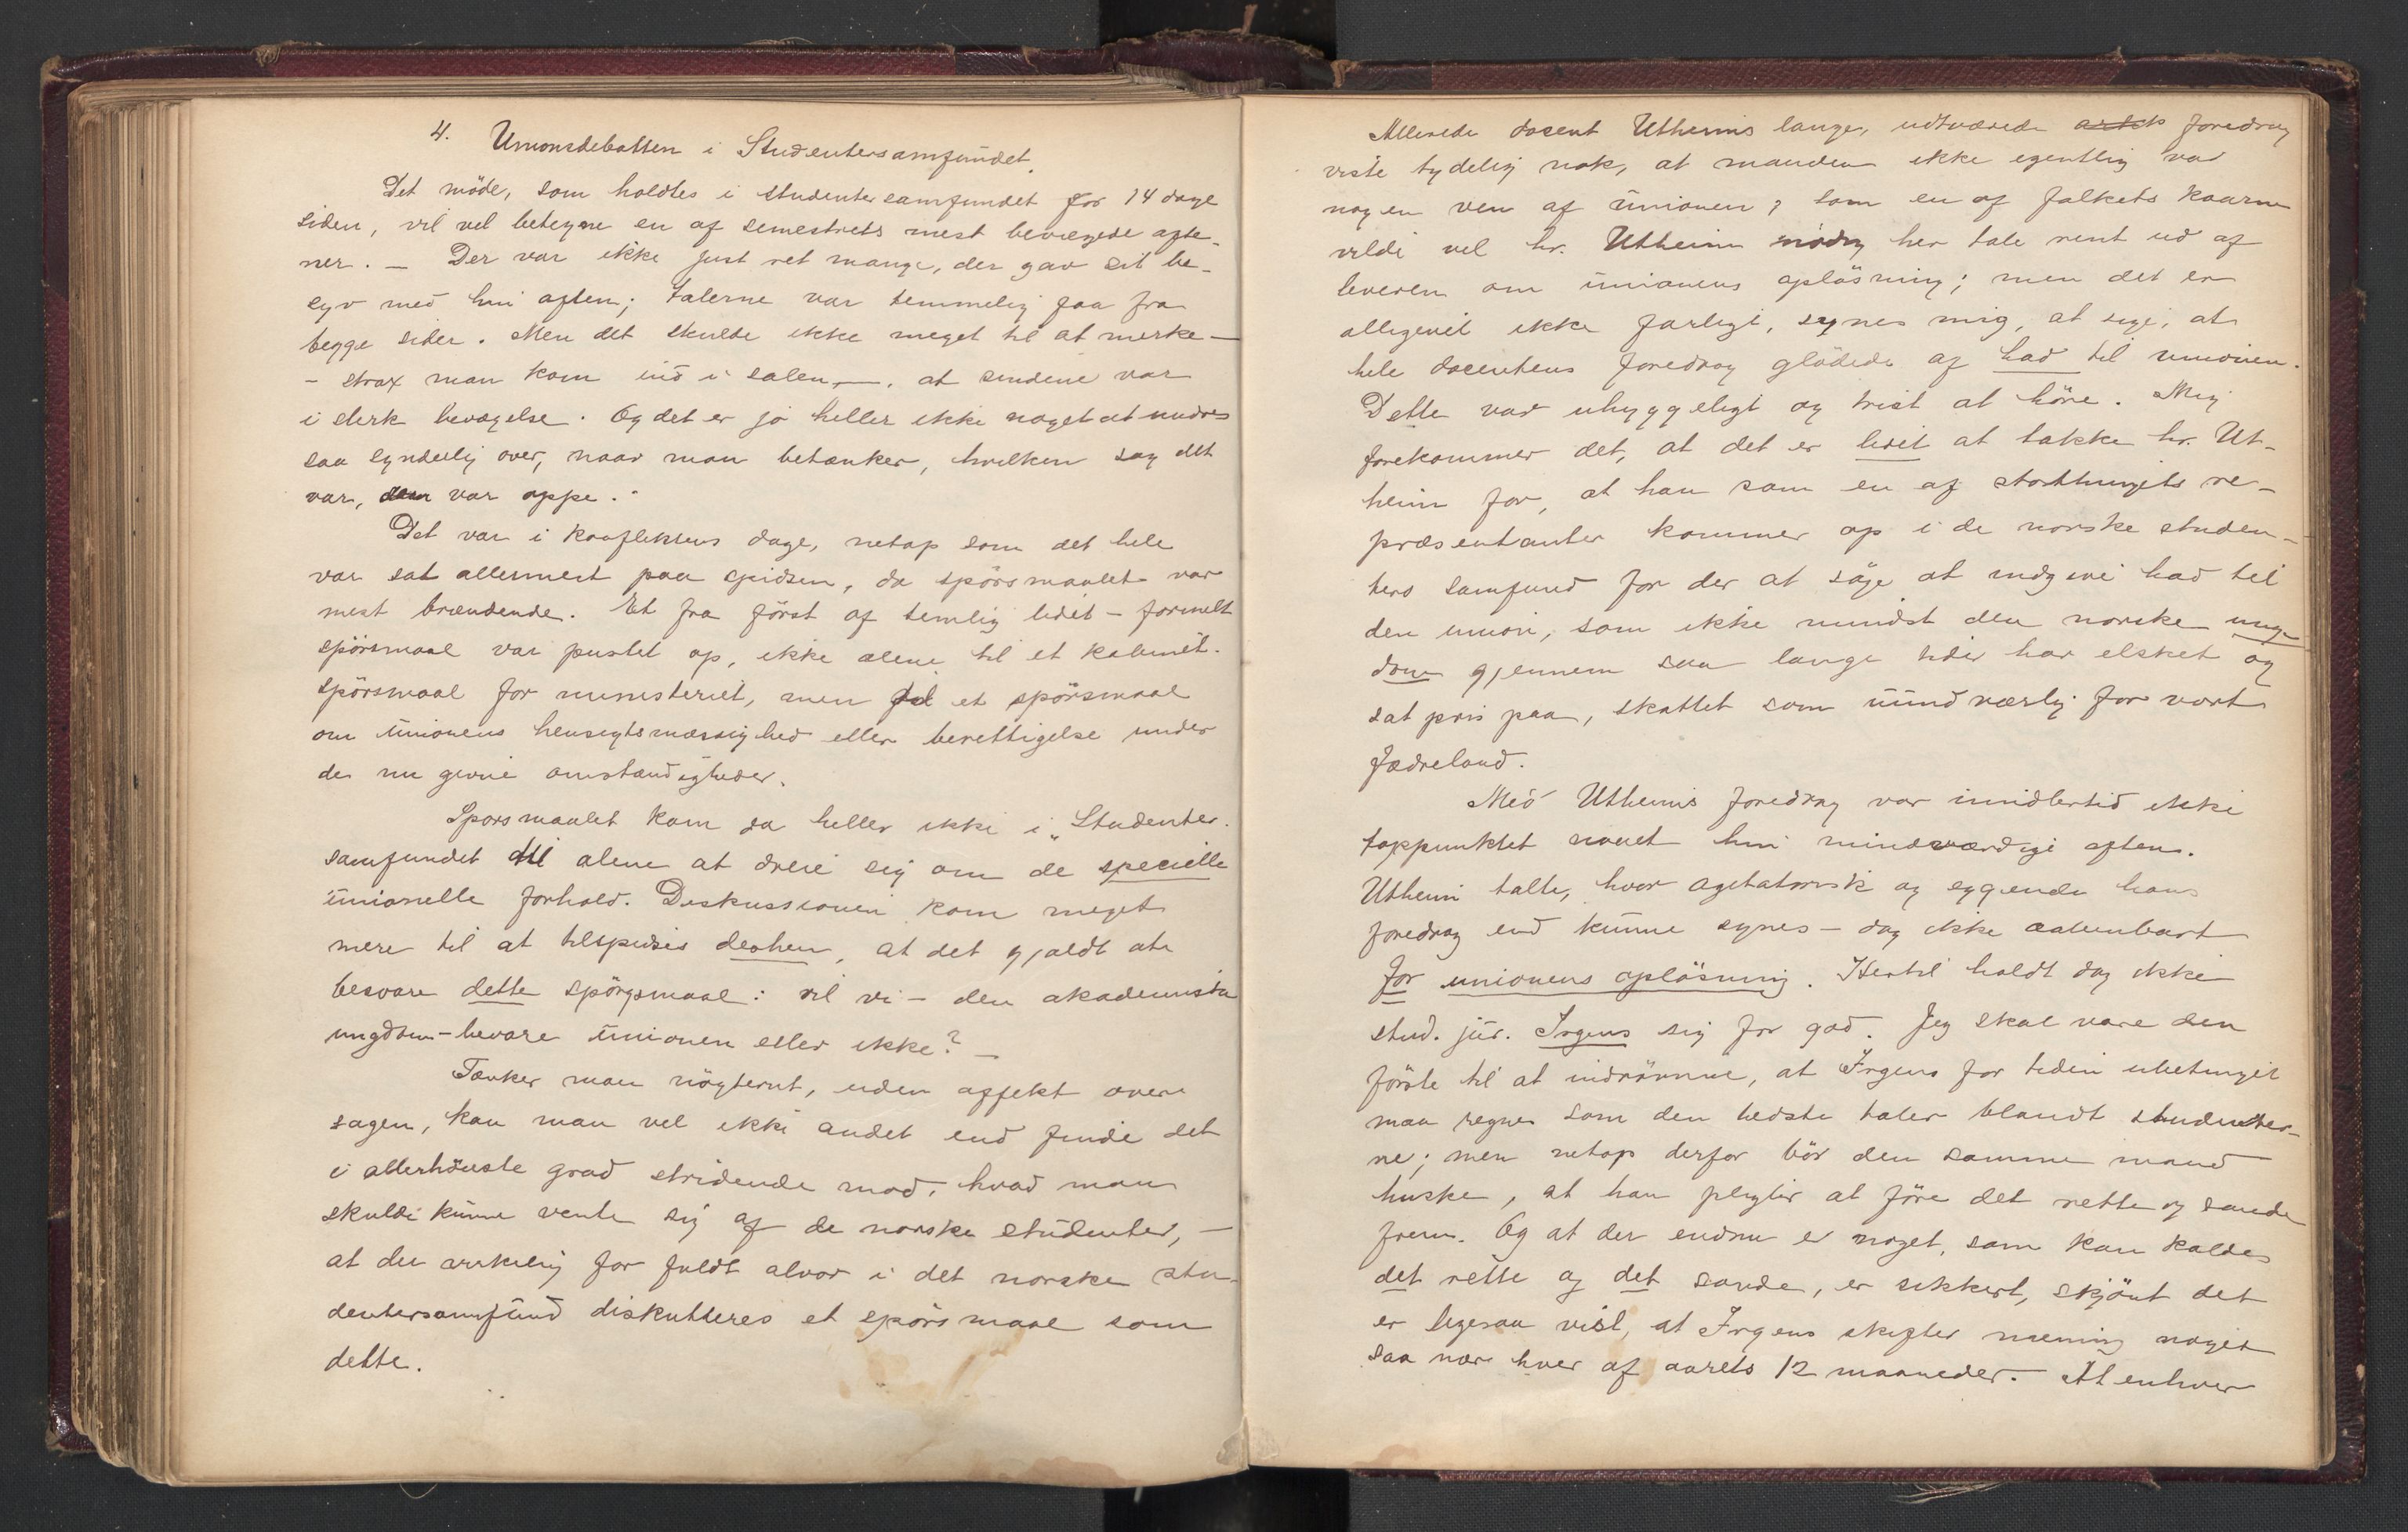 4. Unionsdebatten i Studentersamfundet.
Det möde, som holdtes i studentersamfundet for 14 dage
siden, vil vel betegne en af semestrets mest bevægede afte-
ner. — Der var ikke just ret mange, der gav sit be-
syv med hin aften; talerne var temmelig faa fra
begge sider. Men det skulde ikke meget til at merke —
– strax man kom ind i salen —, at sindene var
i sterk bevægelse. Og det er jo heller ikke noget at undres
saa synderlig over, naar man betænker, hvilken sag det
var, der var oppe.
Det var i konfliktens dage, netop som det hele
var sat allermest paa spidsen, da spörsmaalet var
mest brændende. Et fra först af temlig lidet – formelt
spörsmaal var pustet op, ikke alene til et kabinet-
spörsmaal for ministeriet, men til et spörsmaal
om unionens hensigtsmæssighed eller berettigelse under
de nu givne omstændigheder.
Sporsmaalet kom da heller ikke i „Studenter-
samfundet til alene at dreie sig om de specielle
unionelle forhold. Diskussionen kom meget
mere til at tilspidses derhen, at det gjaldt at
besvare dette spörgsmaal: vil vi – den akademiske
ungdom – bevare unionen eller ikke? —
Tænker man nögternt, uden affekt over
sagen, kan man vel ikke andet end finde det
i allerhöieste grad stridende mod, hvad man
skulde kunne vente sig af de norske studenter, —
at der virkelig for fuldt alvor i det norske stu-
dentersamfund diskutteres et spörsmaal som
dette.
Allerede docent Utheims lange, udtværede foredrag
viste tydelig nok, at manden ikke egentlig var
nogen ven af unionen; som en af folkets kaarne
vilde vel hr. Utheim nödig her tale rent ud af
leveren om unionens oplösning; men det er
alligevel ikke farligt, synes mig, at sige, at
hele docentens foredrag glödede af had til unionen.
Dette var uhyggeligt og trist at höre. Mig
forekommer det, at det er lidet at takke hr. Ut-
heim for, at han som en af storthingets re-
præsentanter kommer op i de norske studen-
ters samfund for der at söge at indgive had til
den union, som ikke mindst den norske ung-
dom gjennem saa lange tider har elsket og
sat pris paa, skattet som uundværlig for vort
fædreland.
Med Utheims foredrag var imidlertid ikke
toppunktet naaet hin mindeværdige aften.
Utheim talte, hvor agitatorisk og eggende hans
foredrag end kunne synes – dog ikke aabenbart
for unionens oplösning. Hertil holdt dog ikke
stud. jur. Irgens sig for god. Jeg skal være den
förste til at indrömme, at Irgens for tiden ubetinget
maa regnes som den bedste taler blandt studenter-
ne; men netop derfor bör den samme mand
huske, at han pligter at före det rette og sande
frem. Og at der endnu er noget, som kan kaldes
det rette og det sande, er sikkert, skjönt det
er ligesaa vist, at Irgens skifter mening noget
saa nær hver af aarets 12 maaneder. At enhver